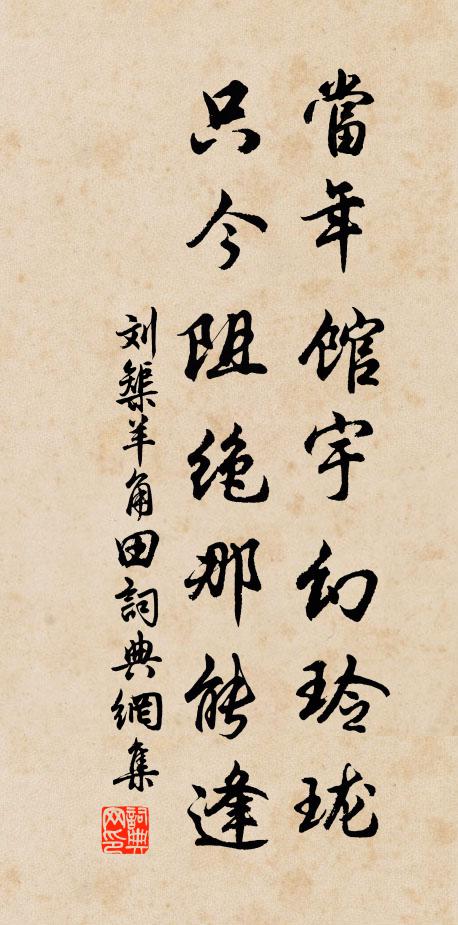 當年館宇幻玲瓏
只今阻絶那能逢
刘䂓羊角田詞典網集
詞典网印